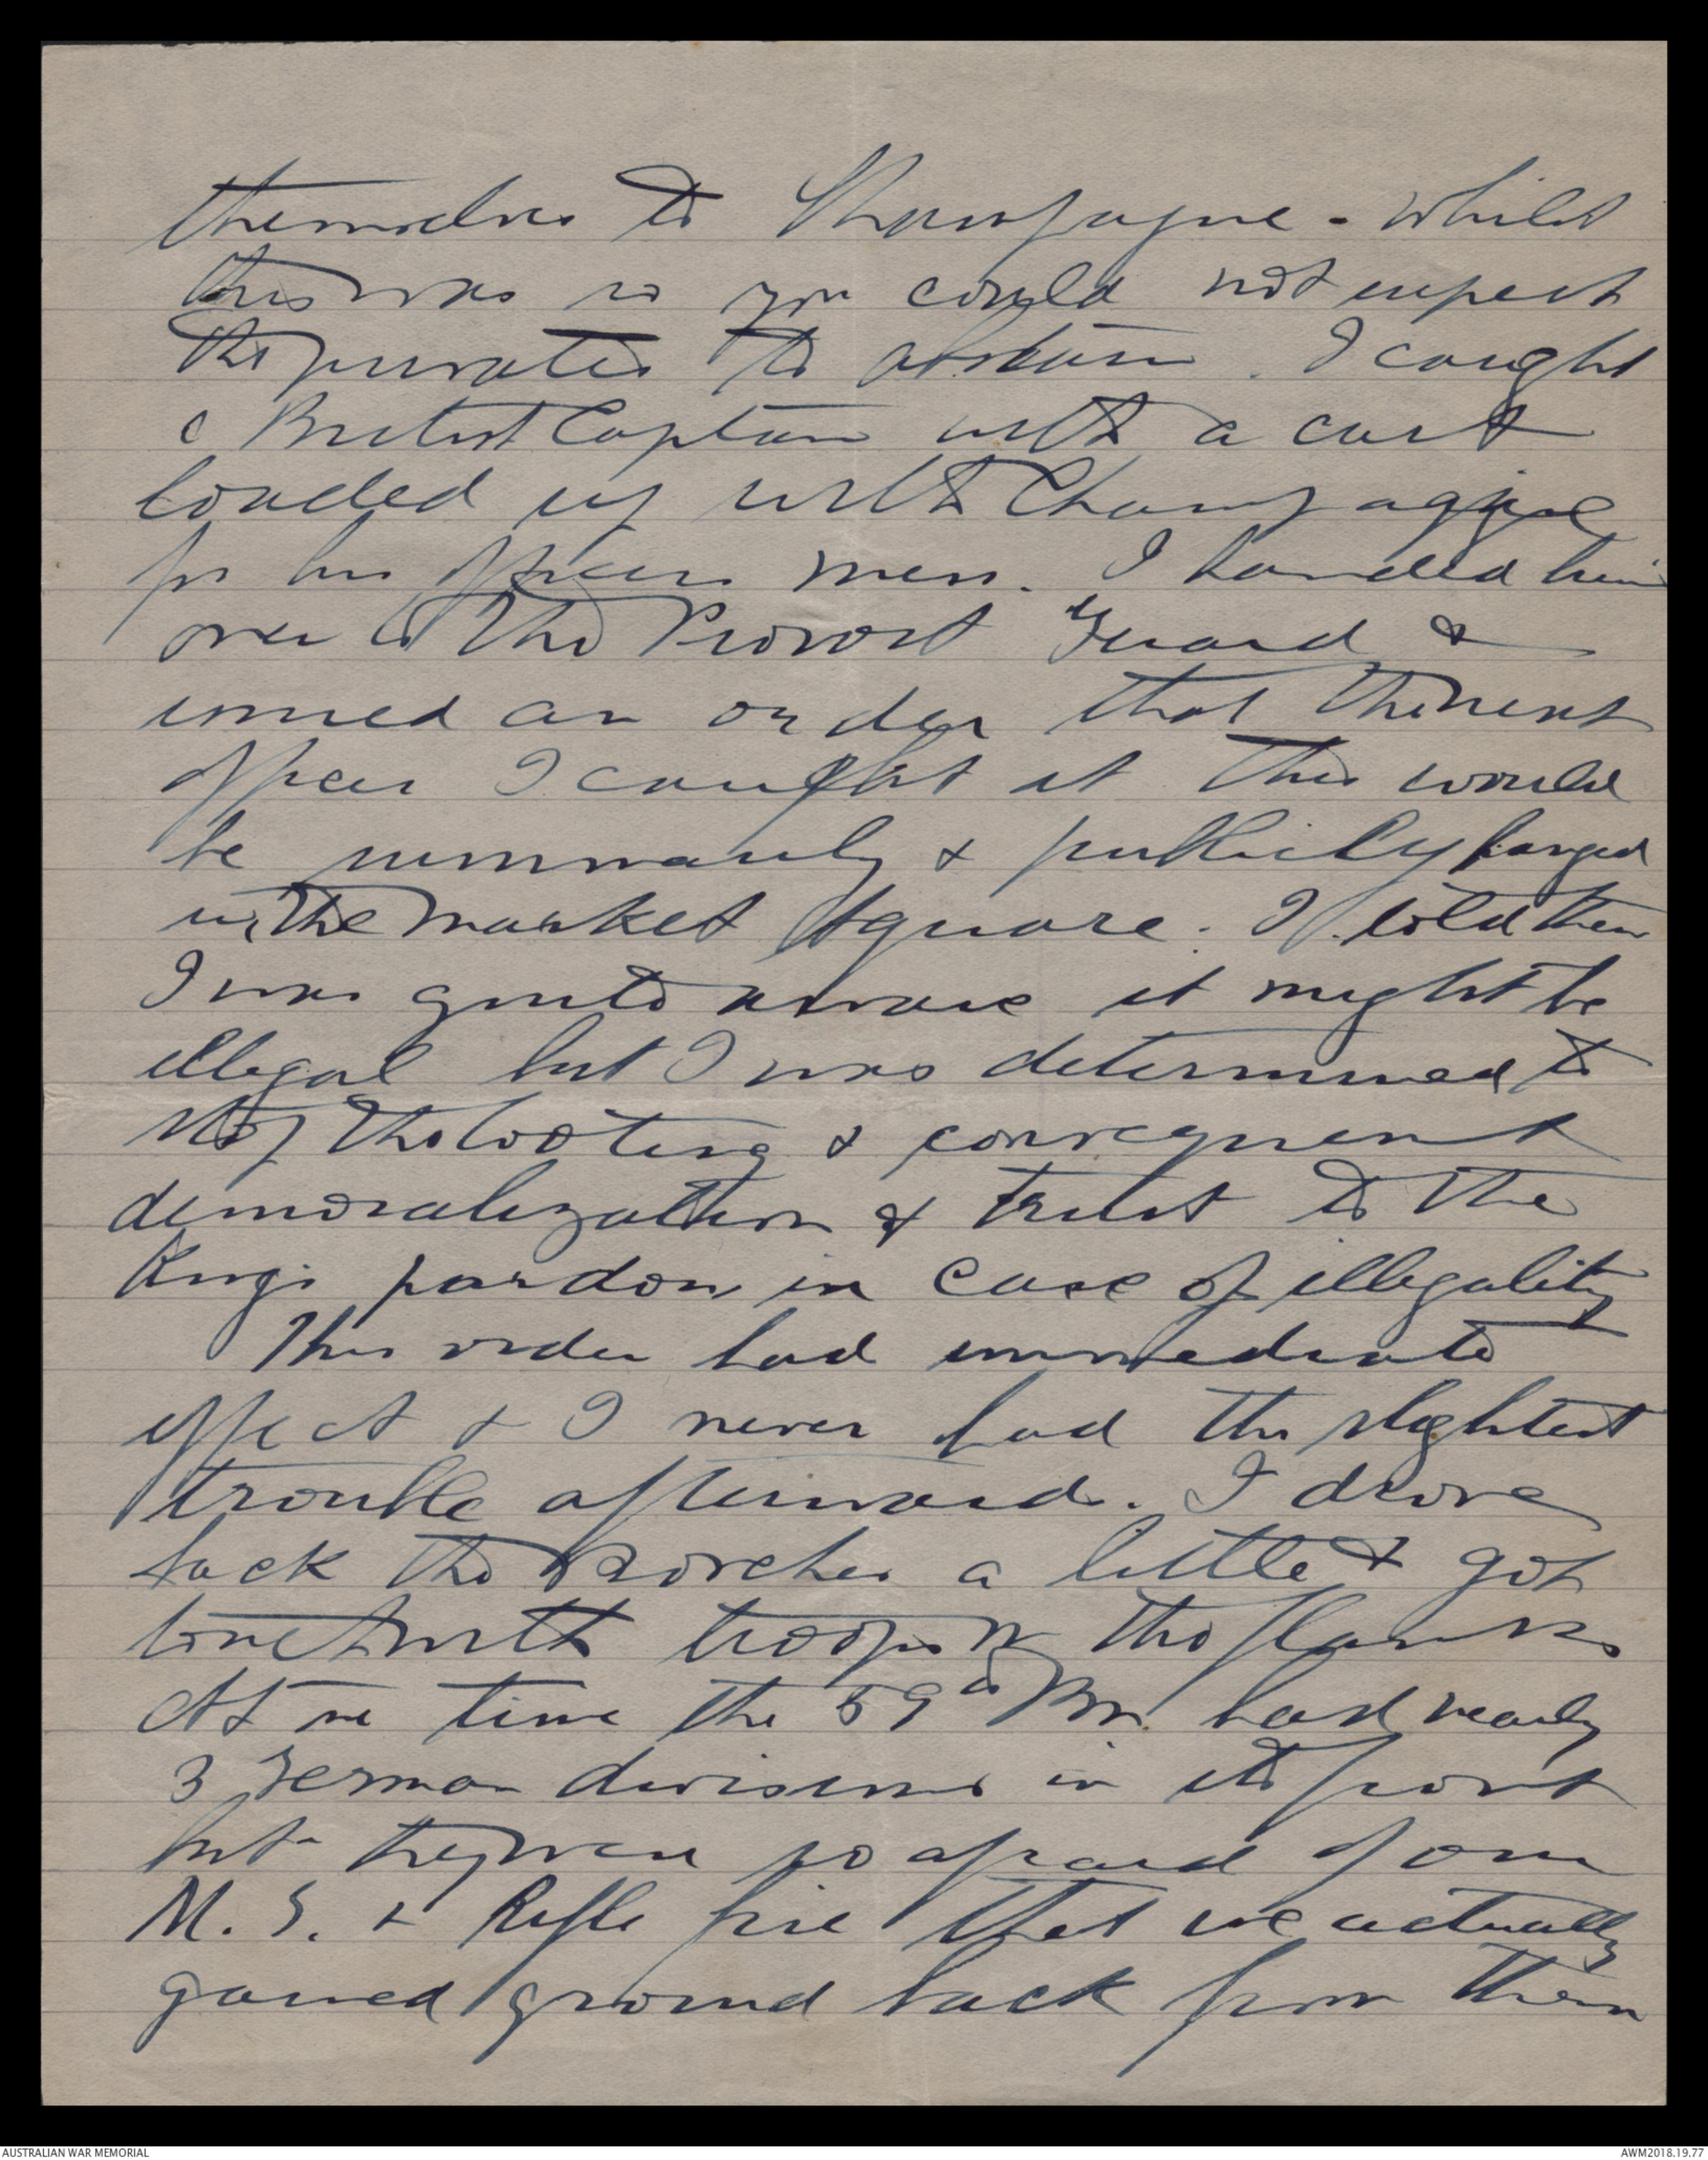 themselves to Champagne - Whilst
this was so you could not expect
the privates to abstain. I caught
a British Captain with a cart
loaded up with Champagne
for his officers mess. I handed him
over to the Provost Guard &
issued an order that the next
officer I caught at this would
be summarily & publickly hanged
in the market square. I told them
I was quite aware it might be
illegal but I was determined to
stop the looting & consequent
demoralization & trust to the
Kings pardon in case of illegality
This order had immediate
effect & I never had the slightest
trouble afterwards. I drove
back the Bosches a little & got
touch with troops on the flanks
At one time the 59th Bn. had nearly
3 German divisions in its front
but they were so afraid of our
M. G. & Rifle fire that we actually
gained ground back from them
AUSTRALIAN WAR MEMORIAL
AWM2018.19.77